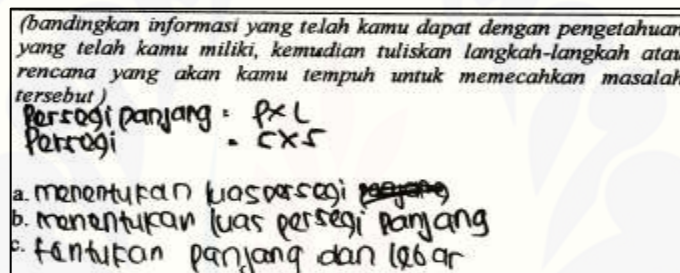 (bandingkan informasi yang telah kamu dapat dengan pengetahuan
yang telah kamu miliki, kemudian tuliskan langkah-langkah atau
rencana yang akan kamu tempuh untuk memecahkan masalah
tersebut)
Persegi panjang = P x L
Persegi = S x S
a. menentukan luas persegi
b. menentukan luas persegi panjang
c. tentukan panjang dan lebar